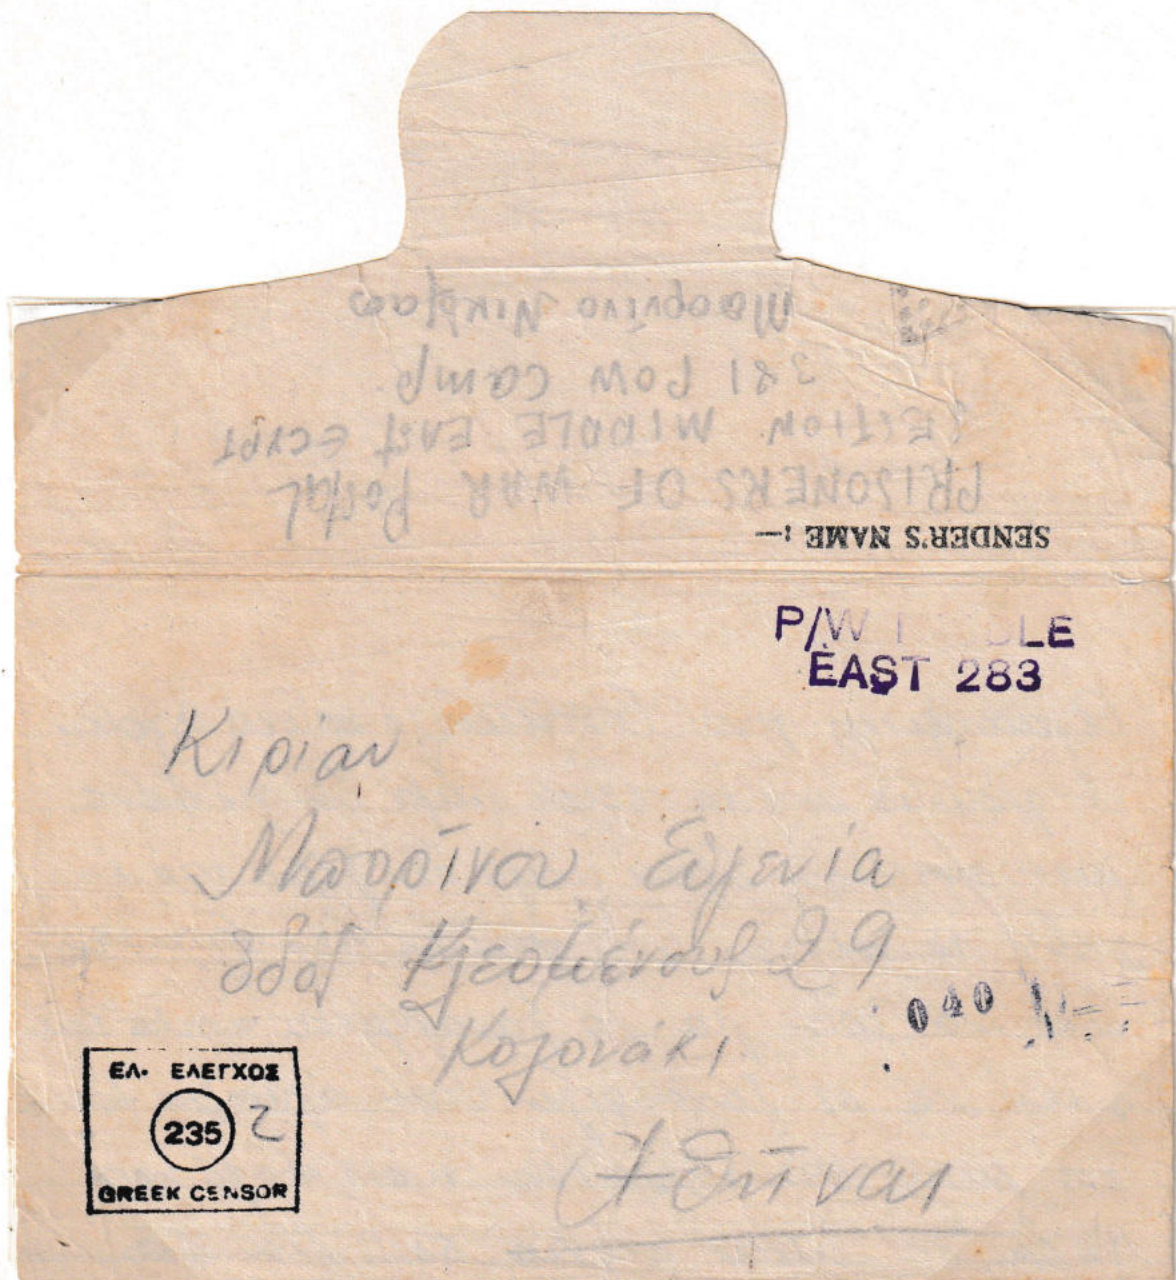 SENDER'S NAME :—
PRISONERS OF WAR Postal
SECTION MIDDLE EAST EGYPT
381 POW Camp.
Μπορίνο Νικόλαο
P/W LE
EAST 283
Κιρίαν
Μπορίνου Εὐγενία
ὁδός Κλεομένους 29
Κολονάκι
Ἀθῆναι
040
ΕΛ. ΕΛΕΓΧΟΣ
235 2
GREEK CENSOR